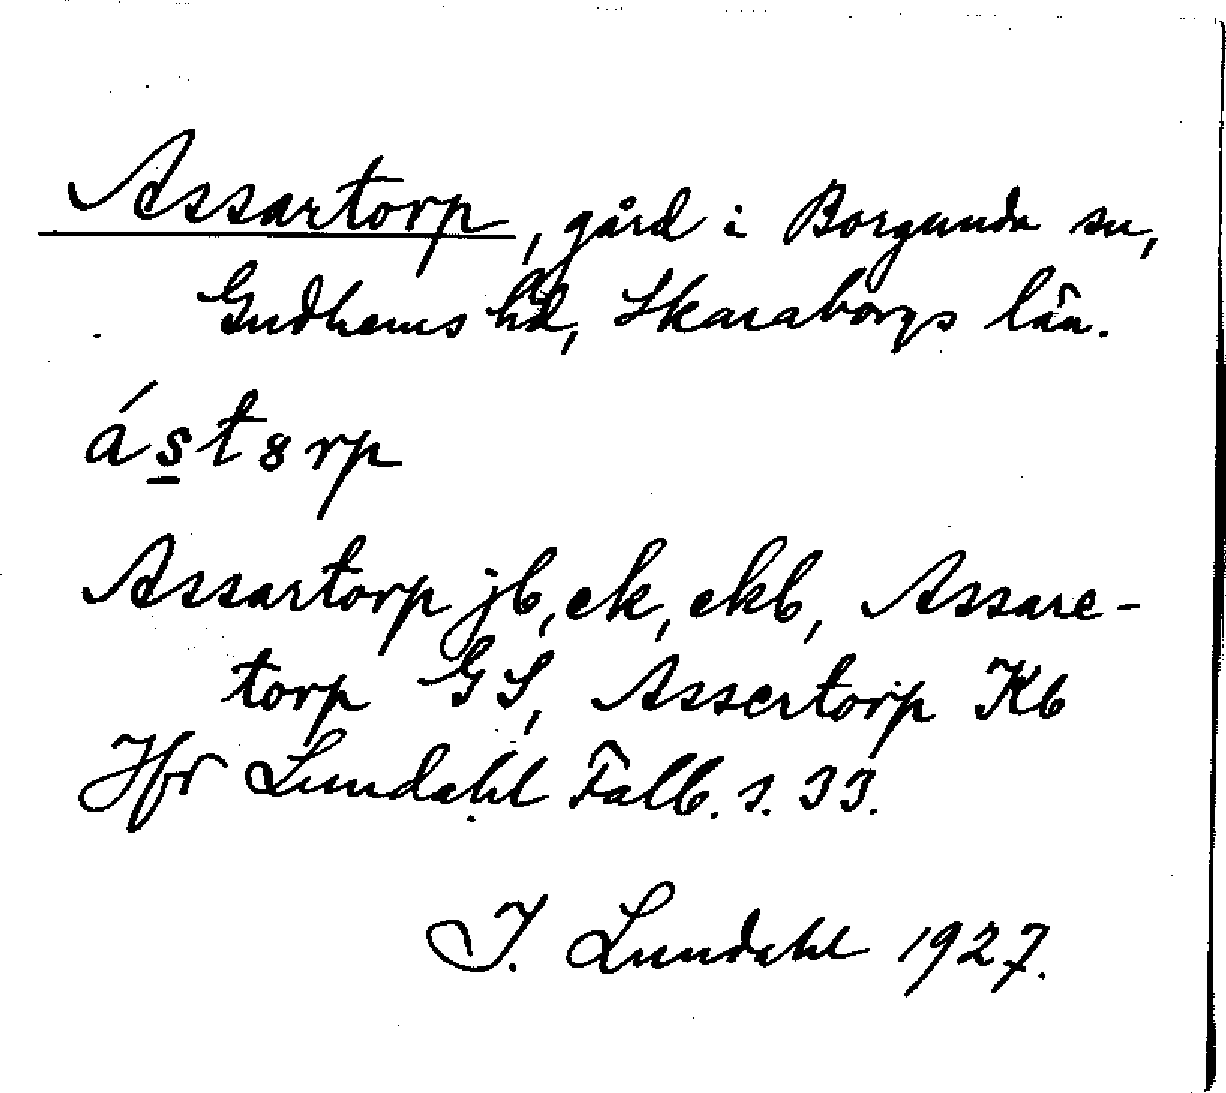 Assartorp, gård i Borgunda sn,
Gudhems hd, Skaraborgs län.
ástȣrp
Assartorp jb, ek, ekb, Assare-
torp GS, Assertorp Kb
Jfr Lundahl Falb. s. 33.
I. Lundahl 1927.